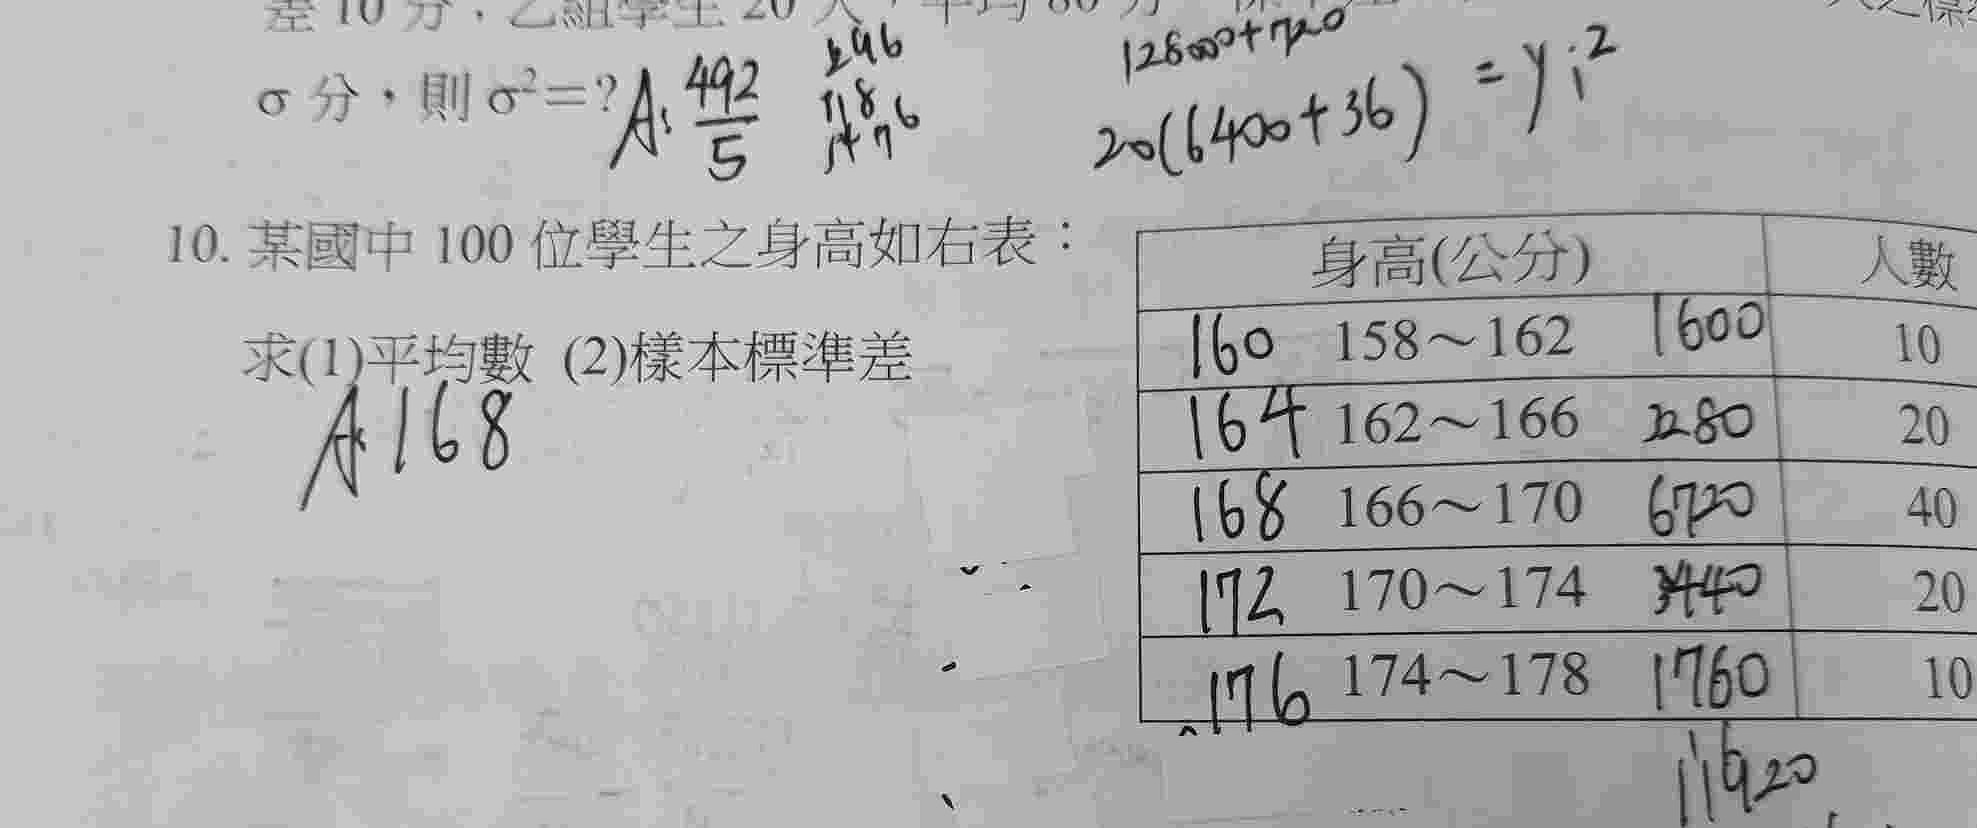 差10分，乙組學生20人，平均80分
σ分，則σ²=? A: 492/5
246
118
1476
12800+720
20(6400+36) = yi²
10. 某國中100位學生之身高如右表：
求(1)平均數 (2)樣本標準差
A: 168
身高(公分) 人數
160 158～162 1600 10
164 162～166 3280 20
168 166～170 6720 40
172 170～174 3440 20
176 174～178 1760 10